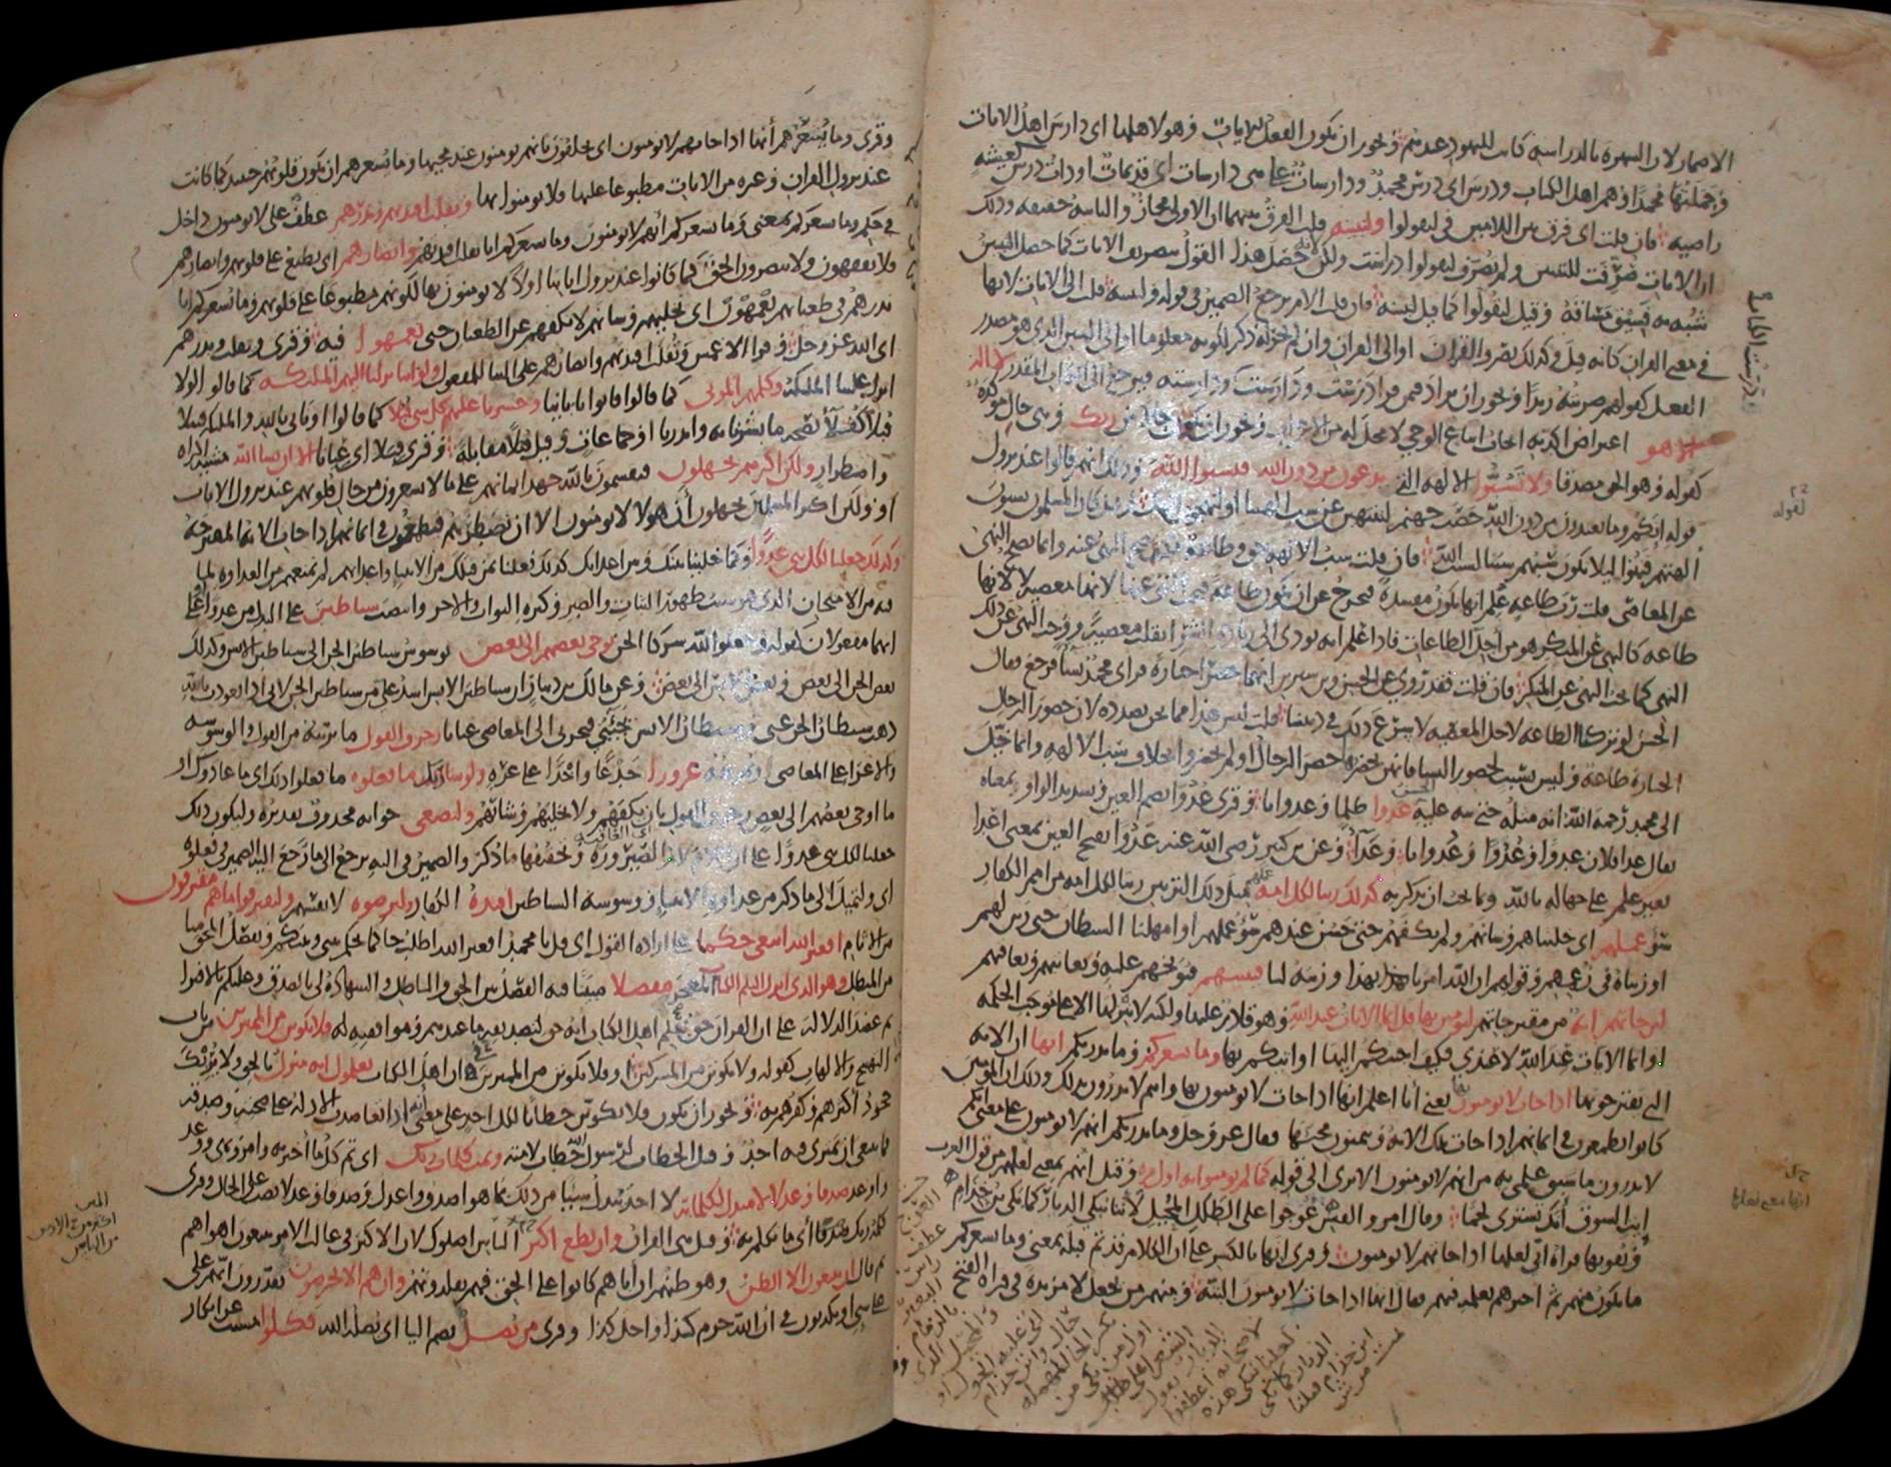 الاصار لان الشهرة بالدراسة كانت لليهود عندهم ويجوز ان يكون الفعل للايات وهو لاهلها اى دارس اهل الايات
وحملتها محمدا وهم اهل الكتاب ودرس اى درس محمد ودارسات على هى دارسات اى قديمات او ذات درس كعيشة
راضية فان قلت اى فرق بين اللامين فى ليقولوا ولنبينه قلت الفرق بينهما ان الاولى مجاز والثانية حقيقة وذلك
ان الايات صرفت للتبيين ولم تصرف ليقولوا درست ولكن لانه حصل هذا القول بتصريف الايات كما حصل التبيين
شبه به فسيق مساقه وقيل ليقولوا كما قيل لنبينه فان قلت الام يرجع الضمير فى قوله ولنبينه قلت الى الايات لانها
فى معنى القران كانه قيل وكذلك نصرف القران او الى القران وان لم يجر له ذكر لكونه معلوما او الى التبيين الذى هو مصدر
الفعل كقولهم ضربته زيدا ويجوز ان يراد فيمن قرا درست ودارست درست الكتاب ودارسته فيرجع الى الكتاب المقدر لا اله
الا هو اعتراض اكد به ايجاب اتباع الوحى لا محل له من الاعراب ويجوز ان يكون حالا من ربك وهى حال مؤكدة
كقوله وهو الحق مصدقا ولا تسبوا الالهة الذين يدعون من دون الله فيسبوا الله وذلك انهم قالوا عند نزول
قوله انكم وما تعبدون من دون الله حصب جهنم لتنتهين عن سب الهتنا او لنهجون الهك وقيل كان المسلمون يسبون
الهتهم فنهوا ليلا يكون سبهم سببا لسب الله فان قلت سب الالهة حق وطاعة فكيف صح النهى عنه وانما يصح النهى
عن المعاصى قلت رب طاعة علم انها تكون مفسدة فتخرج عن ان تكون طاعة فيجب النهى عنها لانها معصية لا لانها
طاعة كالنهى عن المنكر هو من اجل الطاعات فاذا علم انه يودى الى زيادة الشر انقلب معصية ووجب النهى عن ذلك
النهى كما يجب النهى عن المنكر فان قلت فقد روى عن الحسن وابن سيرين انهما حضرا جنازة فراى محمد نساء فرجع فقال
الحسن لو تركنا الطاعة لاجل المعصية لاسرع ذلك فى ديننا قلت ليس هذا مما نحن بصدده لان حضور الرجال
الجنازة طاعة وليس بسبب لحضور النساء فانهن يحضرنها حضر الرجال او لم يحضروا بخلاف سب الالهة وانما خيل
الى محمد رحمه الله انه مثله حتى نبه عليه الحسن عدوا ظلما وعدوانا وقرى عدوا بضم العين وتشديد الواو بمعناه
يقال عدا فلان عدوا وعدوا وعدوانا وعداء وعن ابن كثير رضى الله عنه عدوا بفتح العين بمعنى اعدا
بغير علم على جهالة بالله وبما يجب ان يذكر به كذلك زينا لكل امة مثل ذلك التزيين زينا لكل امة من امم الكفار
سوء عملهم اى خليناهم وشانهم ولم نكفهم حتى حسن عندهم سوء عملهم او امهلنا الشيطان حتى زين لهم
او زيناه فى زعمهم وقولهم ان الله امرنا بهذا وزينه لنا فينبئهم فيوبخهم عليه ويعاتبهم ويعاقبهم
لئن جاتهم اية من مقترحاتهم ليومنن بها قل انما الايات عند الله وهو قادر عليها ولكنه لا ينزلها الا على موجب الحكمة
او انما الايات عند الله لا عندى فكيف اجيبكم اليها او اتيكم بها وما يشعركم وما يدريكم انها ان الاية
التى تقترحونها اذا جات لا يومنون بها يعنى انا اعلم انها اذا جات لا يومنون بها وانتم لا تدرون بذلك وذلك ان المومنين
كانوا يطمعون فى ايمانهم اذا جات تلك الاية ويتمنون مجيئها فقال عز وجل وما يدريكم انهم لا يومنون على معنى انكم
لا تدرون ما سبق علمى به من انهم لا يومنون الا ترى الى قوله كما لم يومنوا به اول مرة وقيل انها بمعنى لعلها من قول العرب
ايت السوق انك تشترى لحما وقال امرو القيس عوجا على الطلل المحيل لاننا نبكى الديار كما بكى ابن خذام
وتقويها قراة ابى لعلها اذا جاتهم لا يومنون وقرى انها بالكسر على ان الكلام قد تم قبله بمعنى وما يشعركم
ما يكون منهم ثم اخبرهم بعلمه فيهم فقال انها اذا جات لا يومنون البتة ومنهم من يجعل لا مزيدة فى قراة الفتح
وقرى وما يشعرهم أنها اذا جاتهم لا يومنون اى يحلفون بانهم يومنون عند مجيها وما يشعرهم ان تكون قلوبهم حينئذ كما كانت
عند نزول القران وغيره من الايات مطبوعا عليها فلا يومنوا بها ونقلب افئدتهم ونذرهم عطف على لا يومنون داخل
فى حكم وما يشعركم بمعنى وما يشعركم انهم لا يومنون وما يشعركم انا نقلب افئدتهم وابصارهم اى نطبع على قلوبهم وابصارهم
فلا يفقهون ولا يبصرون الحق كما كانوا عند نزول اياتنا اولا لا يومنون بها لكونهم مطبوعا على قلوبهم وما يشعركم انا
نذرهم فى طغيانهم يعمهون اى نخليهم وشانهم لا نكفهم عن الطغيان حتى يعمهوا فيه وقرى ويقلب ويذرهم
اى الله عز وجل وقرا الاعمش وتقلب افئدتهم وابصارهم على البنا للمفعول ولو اننا نزلنا اليهم الملئكة كما قالوا لولا
انزل علينا الملئكة وكلمهم الموتى كما قالوا فاتوا باباينا وحشرنا عليهم كل شى قبلا كما قالوا او تاتى بالله والملئكة قبيلا
قبلا كفلاء بصحة ما بشرنا به وانذرنا او جماعات وقيل قبلا مقابلة وقرى قبلا اى عيانا الا ان يشا الله مشيئة اكراه
واضطرار ولكن اكثرهم يجهلون فيقسمون بالله جهد ايمانهم على ما لا يشعرون من حال قلوبهم عند نزول الايات
او ولكن اكثر المسلمين يجهلون أن هولا لا يومنون الا ان يضطرهم فيطمعون فى ايمانهم اذا جات الاية المقترحة
وكذلك جعلنا لكل نبى عدوا وكما خلينا بينك وبين اعدائك كذلك فعلنا بمن قبلك من الانبيا واعدائهم لم نمنعهم من العداوة لما
فيه من الامتحان الذى هو سبب ظهور الثبات والصبر وكثرة الثواب والاجر وانتصب شياطين على البدل من عدوا او على
انهما مفعولان كقوله وجعلوا لله شركا الجن يوحى بعضهم الى بعض يوسوس شياطين الجن الى شياطين الانس وكذلك
بعض الجن الى بعض وبعض الانس الى بعض وعن مالك بن دينار ان شياطين الانس اشد على من شياطين الجن لانى اذا تعوذت بالله
ذهب شيطان الجن عنى وشيطان الانس يجئنى فيجرنى الى المعاصى عيانا زخرف القول ما يزينه من القول والوسوسة
والاغرا على المعاصى ويموهه غرورا خدعا واخذا على غرة ولو شا ربك ما فعلوه ما فعلوا ذلك اى ما عادوك او
ما اوحى بعضهم الى بعض زخرف القول بان يكفهم ولا يخليهم وشانهم ولتصغى جوابه محذوف تقديره وليكون ذلك
جعلنا لكل نبى عدوا على ان اللام لام الصيرورة وتحقيقها ما ذكر والضمير فى اليه يرجع الى ما رجع اليه الضمير فى فعلوه
اى ولتميل الى ما ذكر من عداوة الانبيا ووسوسة الشياطين افئدة الكفار وليرضوه لانفسهم وليقترفوا ما هم مقترفون
من الاثام افغير الله ابتغى حكما على ارادة القول اى قل يا محمد افغير الله اطلب حاكما يحكم بينى وبينكم ويفصل المحق منا
من المبطل وهو الذى انزل اليكم الكتاب المعجز مفصلا مبينا فيه الفصل بين الحق والباطل والشهادة لى بالصدق وعليكم بالافترا
ثم عضد الدلالة على ان القران حق بعلم اهل الكتاب انه حق لتصديقه ما عندهم وموافقته له فلا تكونن من الممترين من باب
التهييج والالهاب كقوله ولا تكونن من المشركين او فلا تكونن من الممترين فى ان اهل الكتاب يعلمون انه منزل بالحق ولا يريبك
جحود اكثرهم وكفرهم به ويجوز ان يكون فلا تكونن خطابا لكل احد على معنى انه اذا تعاضدت الادلة على صحته وصدقه
فما ينبغى ان يمترى فيه احد وقيل الخطاب لرسول الله خطاب لامته وتمت كلمات ربك اى تم كل ما اخبر به وامر ونهى ووعد
واوعد صدقا وعدلا لا مبدل لكلماته لا احد يبدل شيئا من ذلك بما هو اصدق واعدل وصدقا وعدلا نصب على الحال وقرى
كلمة ربك صدقا أى ما تكلم به وقيل هى القران وان تطع اكثر الناس اضلوك لان الاكثر فى غالب الامر يتبعون اهواهم
ثم قال ان يتبعون الا الظن وهو ظنهم ان اباهم كانوا على الحق فهم يقلدونهم وان هم الا يخرصون يقدرون انهم على
على شى او يكذبون فى أن الله حرم كذا واحل كذا وقرى من يضل بضم اليا اى يضله الله فكلوا مسبب عن انكار